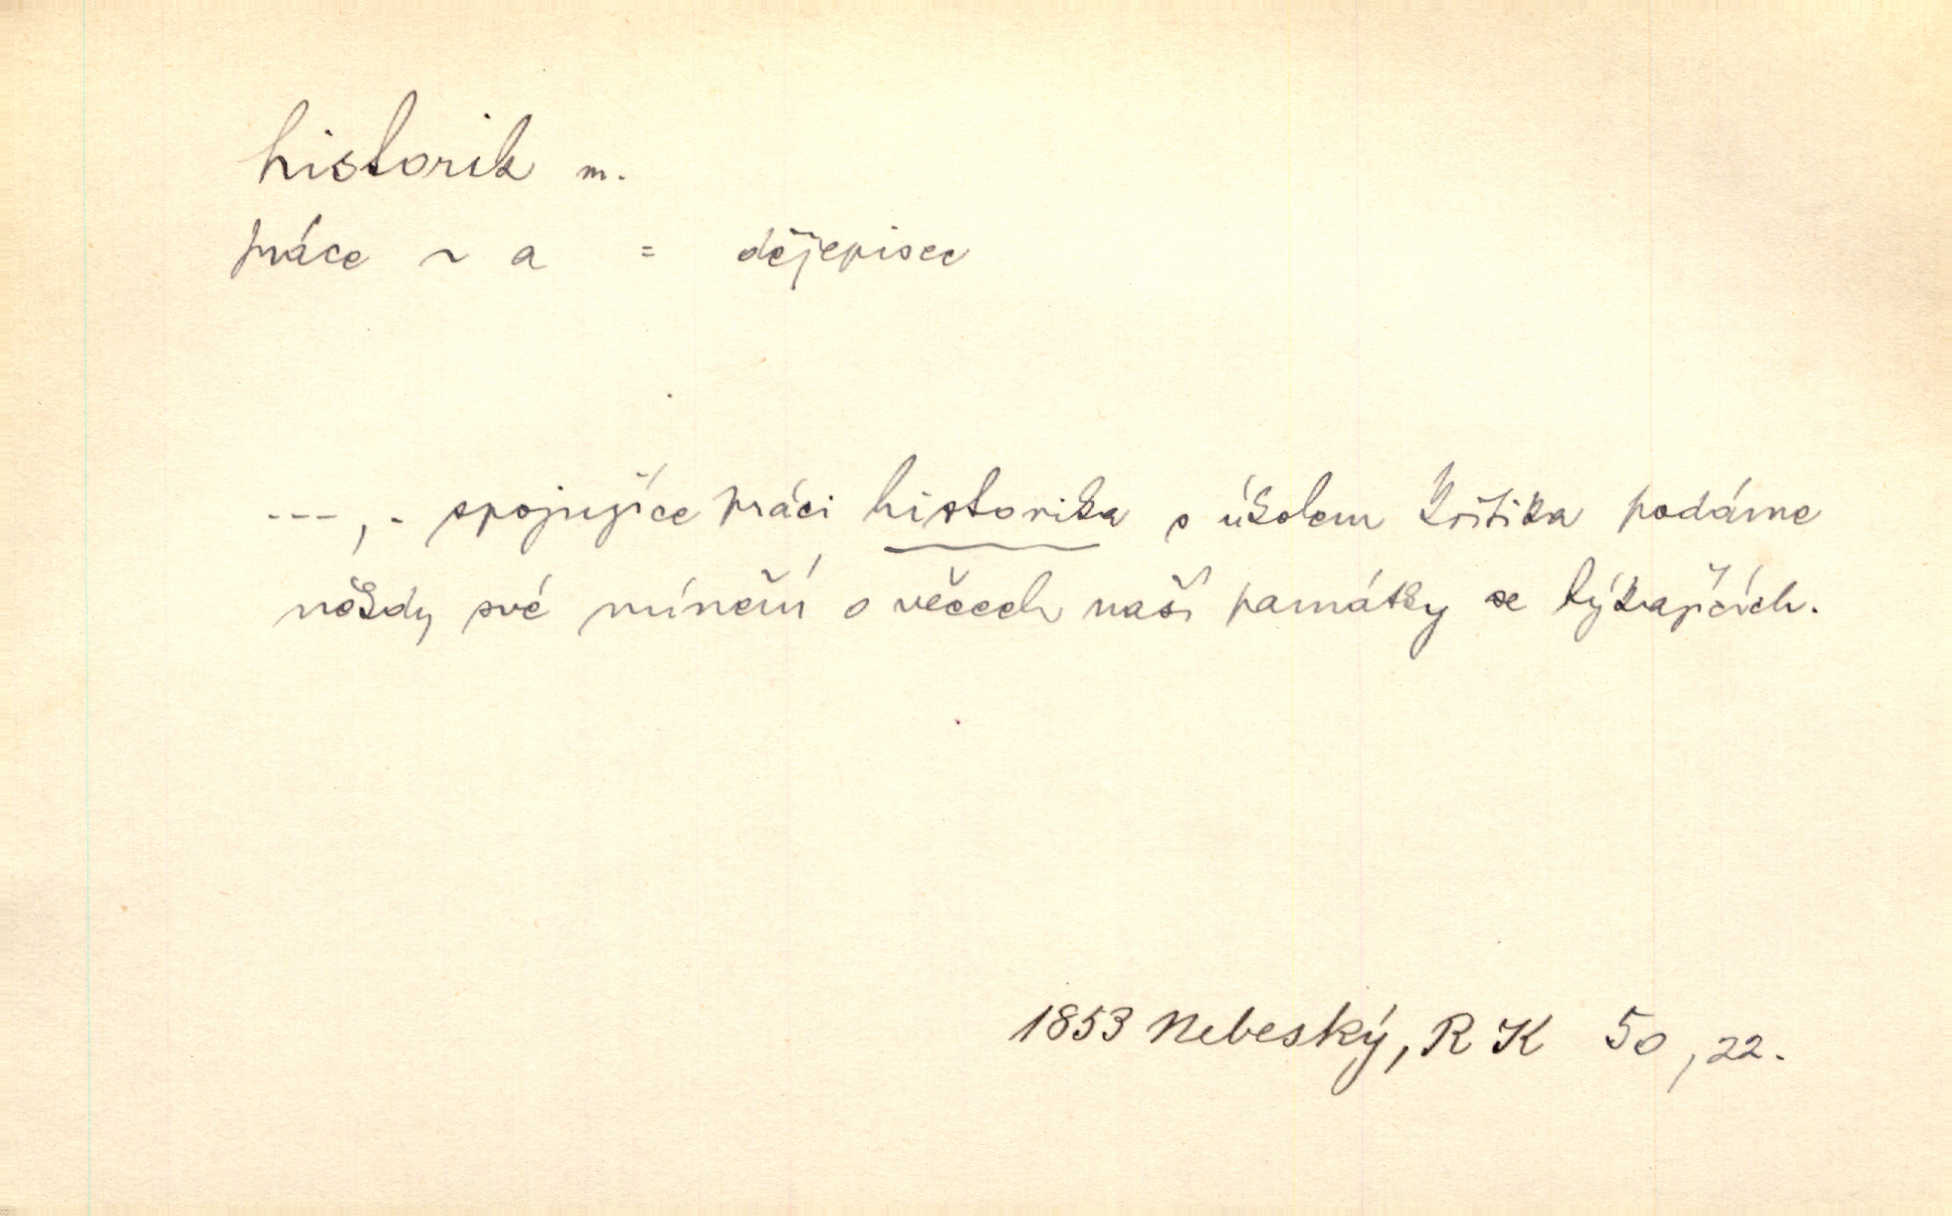 historik m.
práce ~ a = dějepisec
---, - spojujíce práci historika s úkolem kritika podáme
někdy své mínění o věcech naší památky se týkajících.
1853 Nebeský, RK 50, 22.